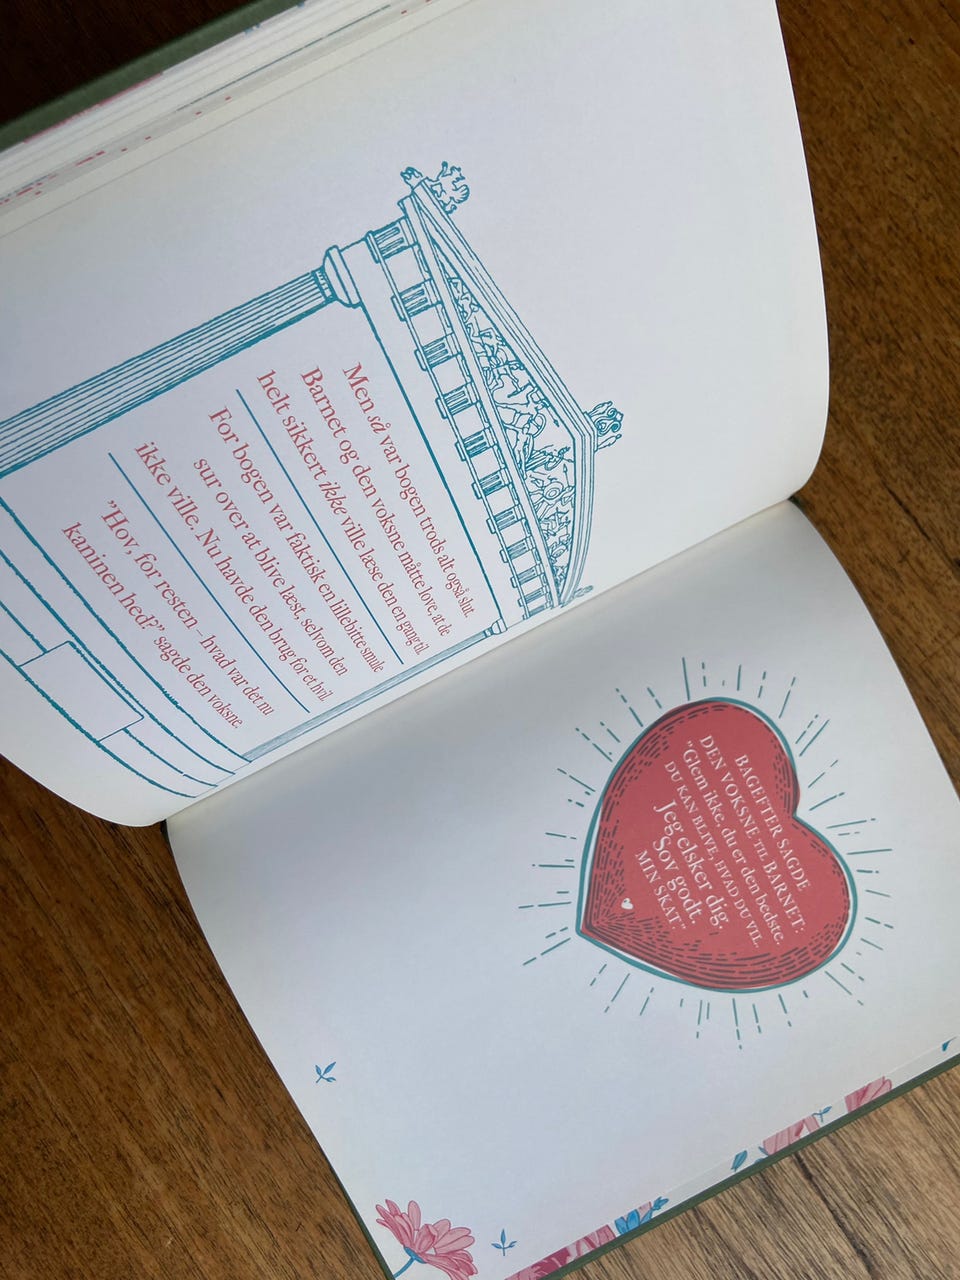 Men så var bogen trods alt også slut.
Barnet og den voksne måtte love, at de
helt sikkert ikke ville læse den en gang til.
For bogen var faktisk en lillebitte smule
sur over at blive læst, selvom den
ikke ville. Nu havde den brug for et hvil.
"Hov, for resten – hvad var det nu
kaninen hed?" sagde den voksne.
BAGEFTER SAGDE
DEN VOKSNE TIL BARNET:
"Glem ikke, du er den bedste.
DU KAN BLIVE, HVAD DU VIL.
Jeg elsker dig.
Sov godt,
MIN SKAT."